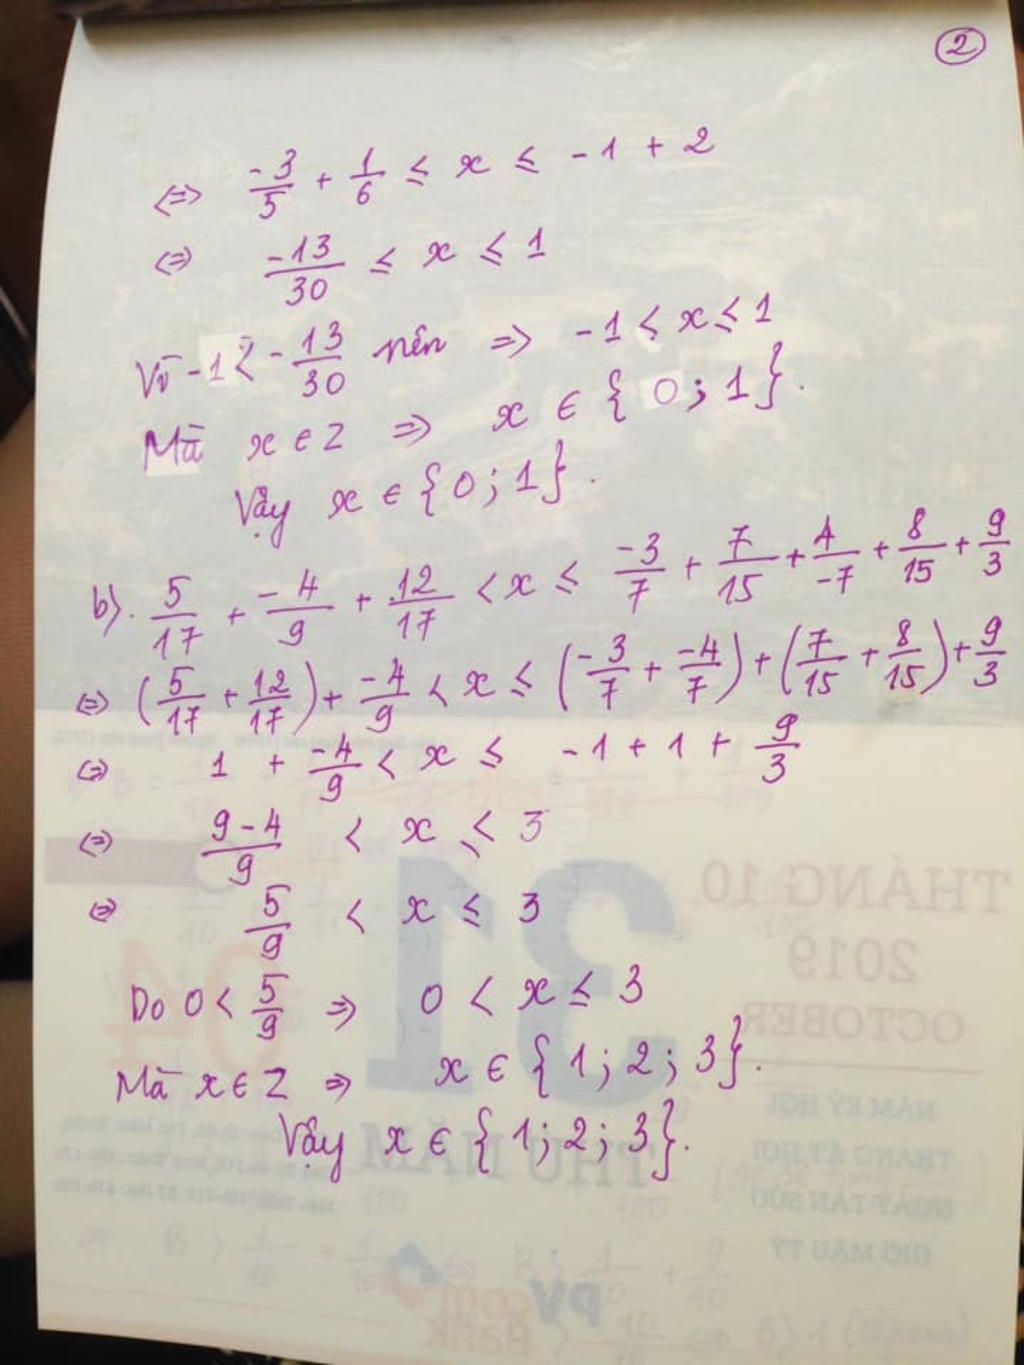 2
⇔ -3/5 + 1/6 ≤ x ≤ -1 + 2
⇔ -13/30 ≤ x ≤ 1
Vì -1 < -13/30 nên ⇒ -1 < x ≤ 1
Mà x ∈ Z ⇒ x ∈ {0; 1}.
Vậy x ∈ {0; 1}.
b). 5/17 + -4/9 + 12/17 < x ≤ -3/7 + 7/15 + 4/-7 + 8/15 + 9/3
⇔ (5/17 + 12/17) + -4/9 < x ≤ (-3/7 + -4/7) + (7/15 + 8/15) + 9/3
⇔ 1 + -4/9 < x ≤ -1 + 1 + 9/3
⇔ 9-4/9 < x ≤ 3
⇔ 5/9 < x ≤ 3
Do 0 < 5/9 ⇒ 0 < x ≤ 3
Mà x ∈ Z ⇒ x ∈ {1; 2; 3}.
Vậy x ∈ {1; 2; 3}.
THÁNG 10
2019
OCTOBER
31
04
NĂM KỶ HỢI
THÁNG ẤT HỢI
NGÀY TÂN SỬU
GIỜ MẬU TÝ
THỨ NĂM
PVcomBank